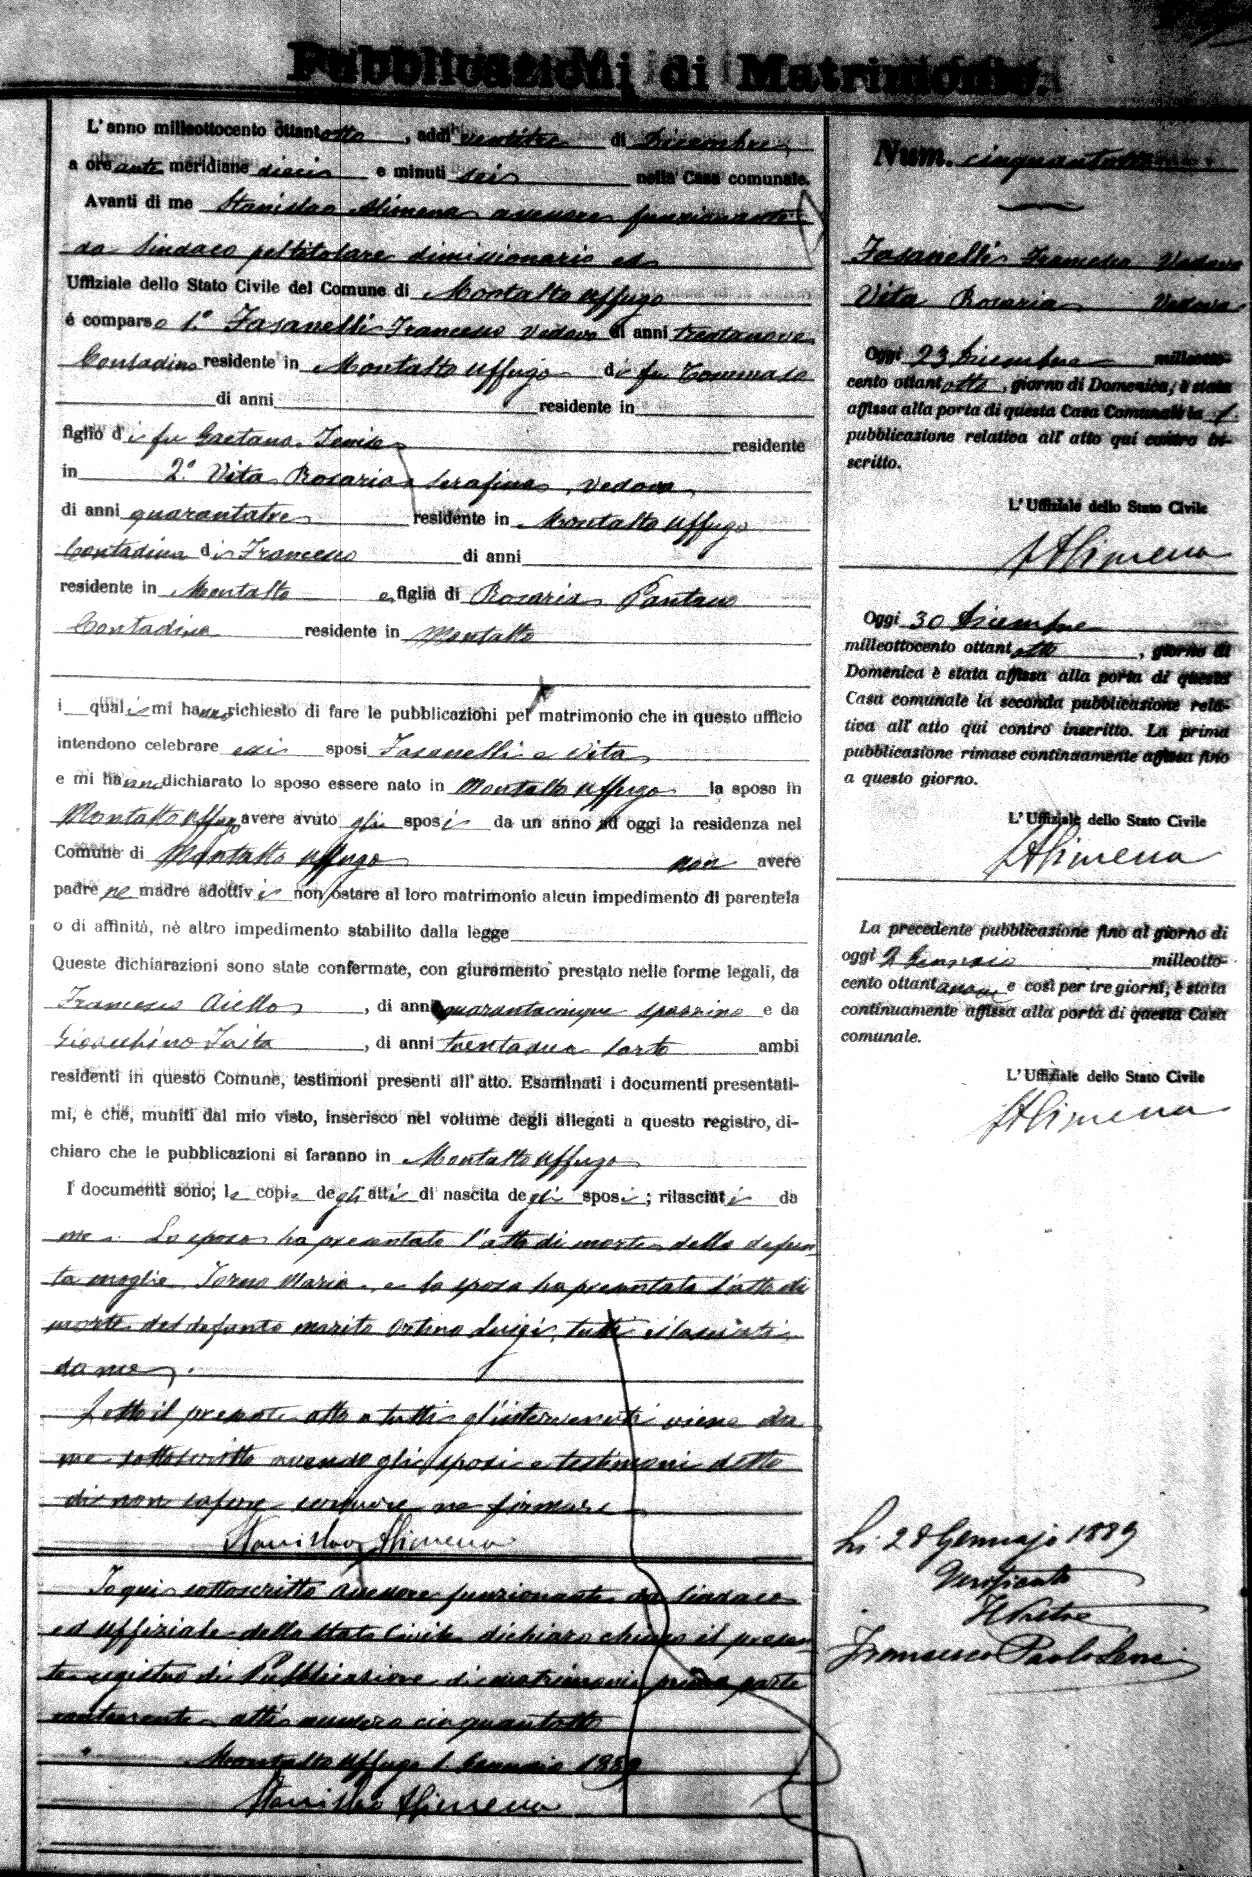 Pubblicazioni di Matrimonio.
L'anno milleottocento ottantotto, addì ventitre di Dicembre,
a ore ante meridiane dieci e minuti sei nella Casa comunale.
Avanti di me Stanislao Alimena assessore funzionante
da Sindaco pel titolare dimissionario ed
Uffiziale dello Stato Civile del Comune di Montalto Uffugo
è comparso 1.º Fasanelli Francesco Vedovo di anni trentanove
Contadino residente in Montalto Uffugo di fu Tommaso
di anni residente in
figlio di fu Gaetana residente
in 2.º Vita Rosaria Serafina, vedova
di anni quarantatre residente in Montalto Uffugo
Contadina di Francesco di anni
residente in Montalto e figlia di Rosaria Pantano
Contadina residente in Montalto
i quali mi hanno richiesto di fare le pubblicazioni per matrimonio che in questo ufficio
intendono celebrare essi sposi Fasanelli e Vita
e mi hanno dichiarato lo sposo essere nato in Montalto Uffugo la sposa in
Montalto Uffugo avere avuto gli sposi da un anno ad oggi la residenza nel
Comune di Montalto Uffugo non avere
padre ne madre adottivi non ostare al loro matrimonio alcun impedimento di parentela
o di affinità, nè altro impedimento stabilito dalla legge
Queste dichiarazioni sono state confermate, con giuramento prestato nelle forme legali, da
Francesco Aiello, di anni quarantacinque e da
Gioacchino Faita, di anni trentadue sarto ambi
residenti in questo Comune, testimoni presenti all'atto. Esaminati i documenti presentati-
mi, e che, muniti dal mio visto, inserisco nel volume degli allegati a questo registro, di-
chiaro che le pubblicazioni si faranno in Montalto Uffugo
I documenti sono; le copie degli atti di nascita degli sposi; rilasciati da
me. Lo sposo ha presentato l'atto di morte della defun-
ta moglie Maria e la sposa ha presentato l'atto di
morte del defunto marito Luigi, tutti rilasciati
da me.
Letto il presente atto a tutti gl'intervenuti viene da
me sottoscritto avendo gli sposi e testimoni detto
di non sapere scrivere ne firmare
Stanislao Alimena
Io qui sottoscritto assessore funzionante da Sindaco
ed uffiziale dello Stato Civile dichiaro chiuso il presen-
te registro di Pubblicazione di matrimonii prima parte
contenente atti numero cinquantotto
Montalto Uffugo 1 Gennaio 1889
Stanislao Alimena
Num. cinquantotto
Fasanelli Francesco Vedovo
Vita Rosaria Vedova
Oggi 23 Dicembre milleotto-
cento ottantotto, giorno di Domenica, è stata
affissa alla porta di questa Casa Comunale la 1
pubblicazione relativa all'atto qui contro in-
scritto.
L'Uffiziale dello Stato Civile
S Alimena
Oggi 30 Dicembre
milleottocento ottantotto, giorno di
Domenica è stata affissa alla porta di questa
Casa comunale la seconda pubblicazione rela-
tiva all'atto qui contro inscritto. La prima
pubblicazione rimase continuamente affissa fino
a questo giorno.
L'Uffiziale dello Stato Civile
S Alimena
La precedente pubblicazione fino al giorno di
oggi 2 Gennaio milleotto-
cento ottantanove e così per tre giorni, è stata
continuamente affissa alla porta di questa Casa
comunale.
L'Uffiziale dello Stato Civile
S Alimena
Li 28 Gennajo 1889
Verificato
Francesco Paolo